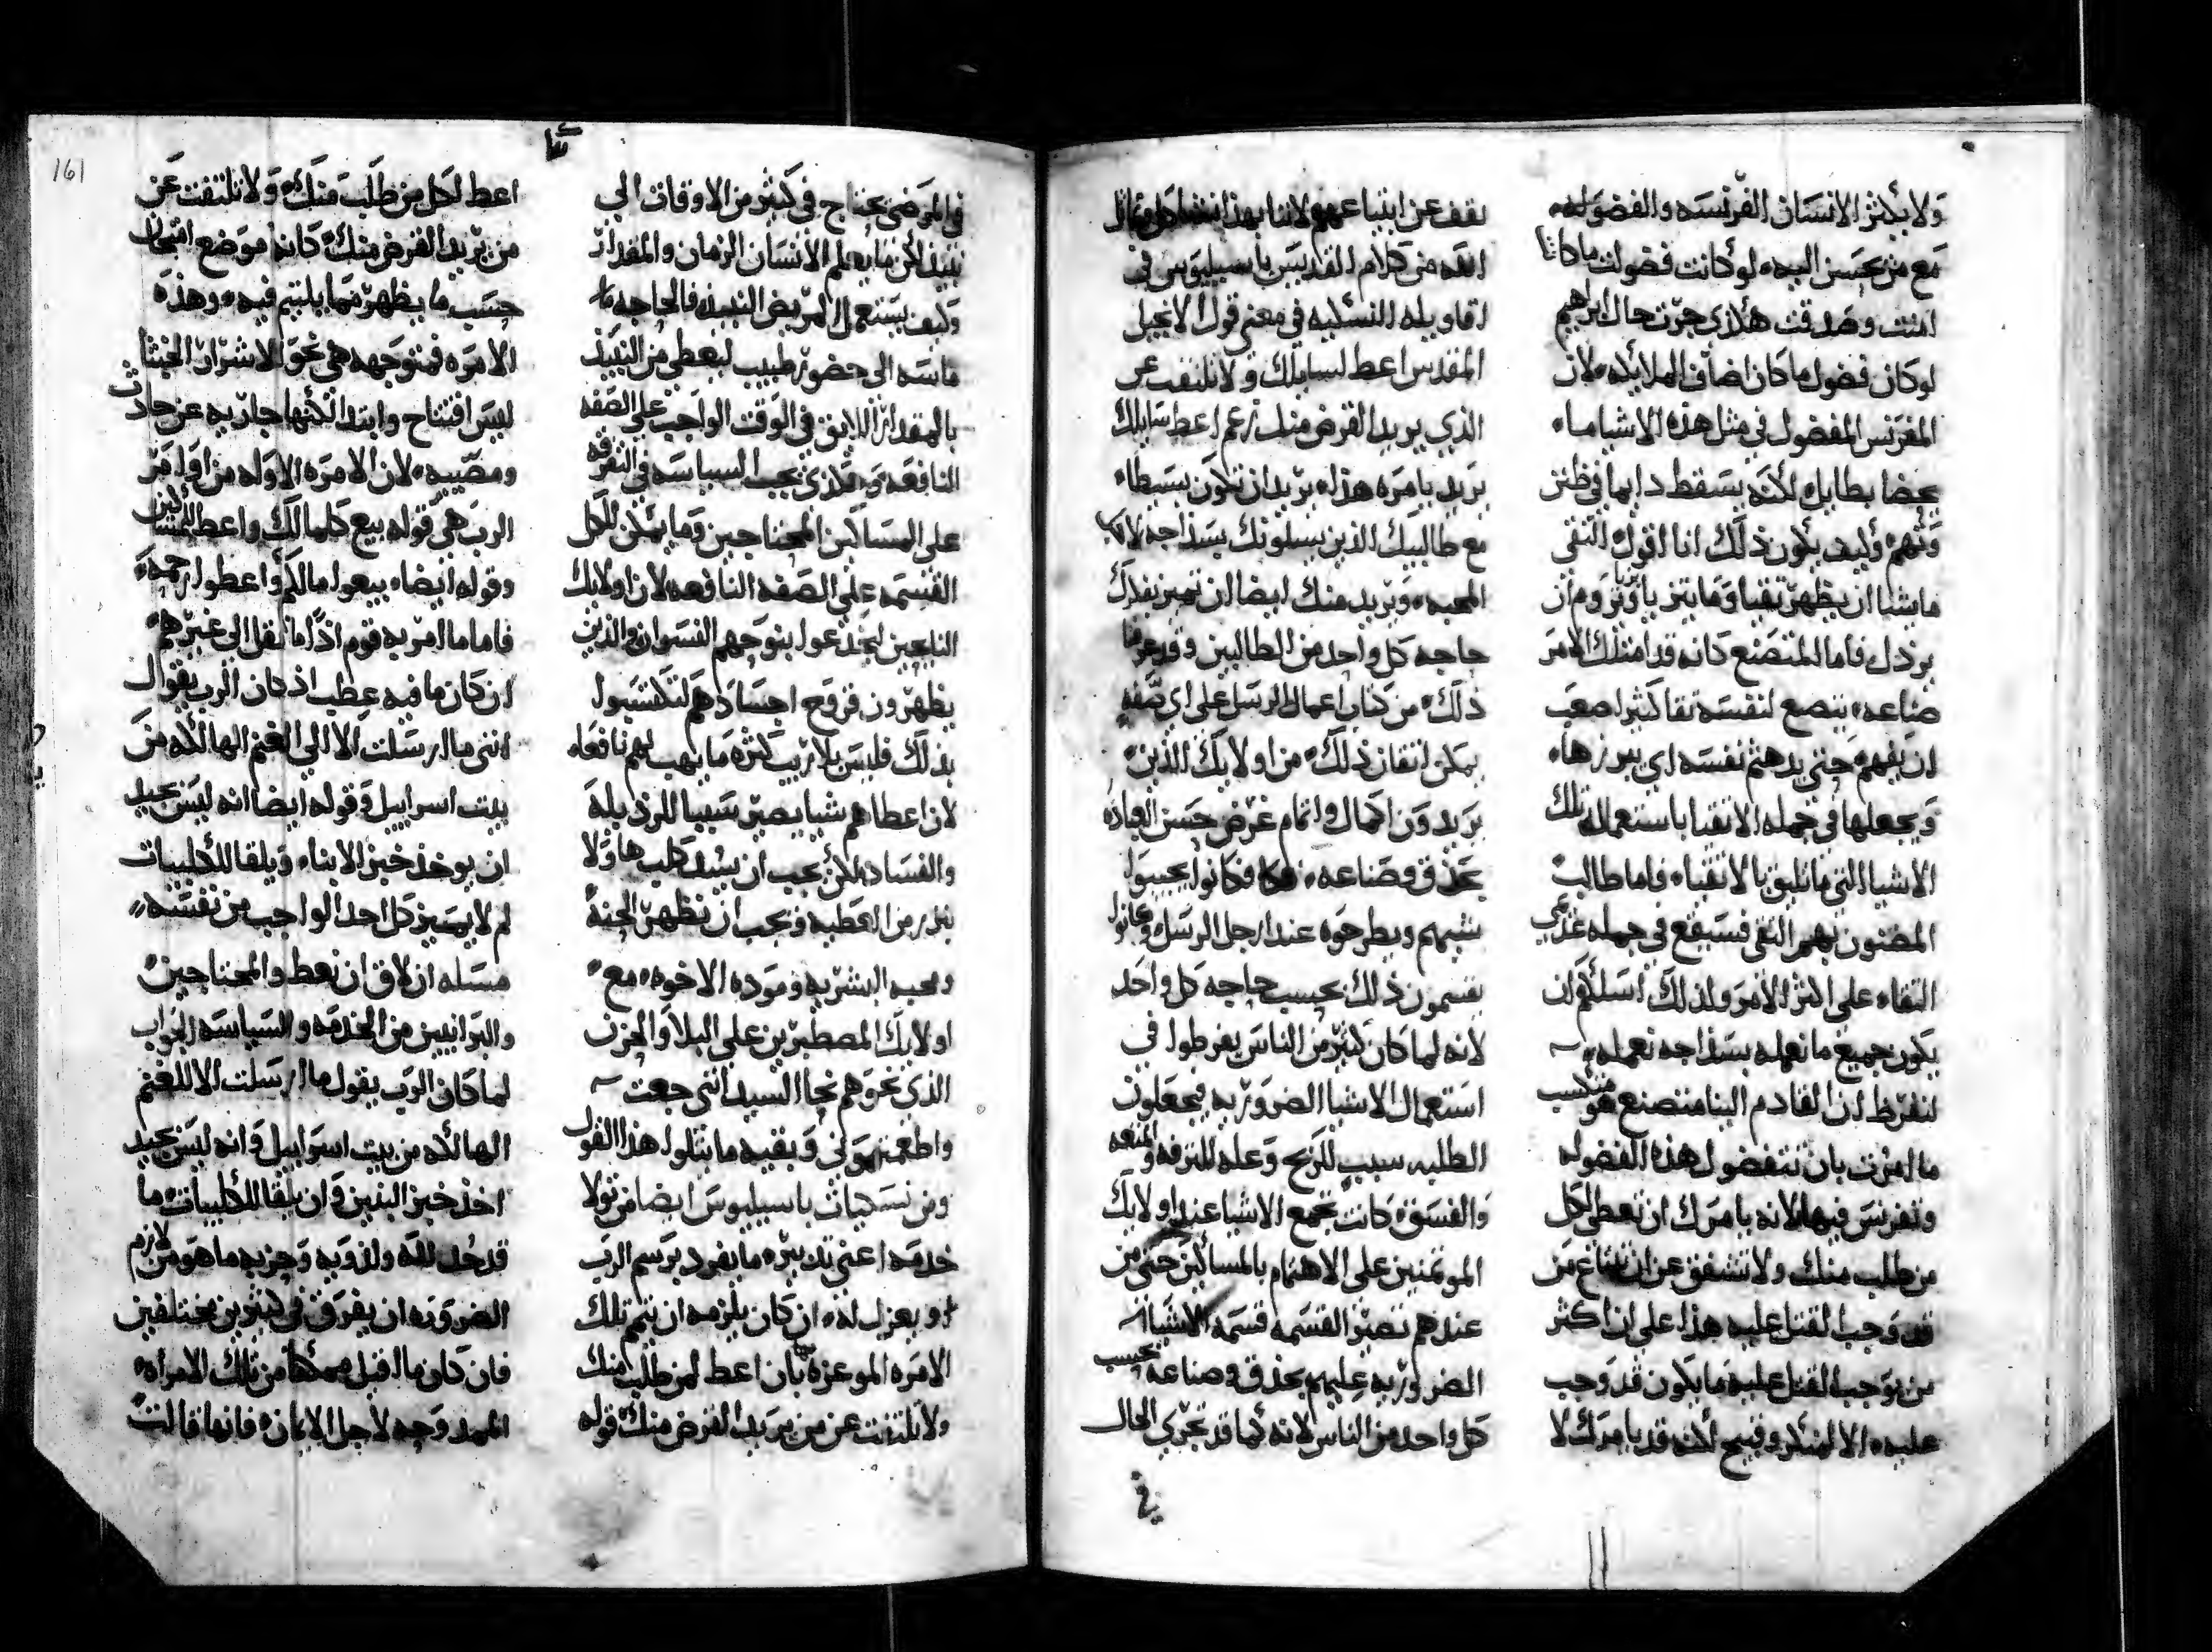 ولا يكثر الانسان الفرنسه والفضوليه
مع من يحسن اليه لو كانت فضولت ما كانت
امنت وصدقت هكذي جرت حال ابراهيم
لو كان فضول ما كان اضاف الملايكه لان
المفرنس المفضول في مثل هذه الاشيا ما
يحضا بطايل لكنه يسقط دايما في ظنن
وتهم وكيف يكون ذلك انا اقول التقي
ما يشا ان يظهر تقيا وما يتزيا بزي ويروم ان
يرذل فاما المتصنع كانه قد امتلك الامر
صناعه يتصنع لنفسه تقا كثيرا صعب
ان يفهم حتى يدهثم نفسه اي يبرزها
ويجعلها في جمله الاتقيا باستعماله تلك
الاشيا التي ما تليق بالاتقياء فاما طالب
المضنون بهم التقي فسيقع في جمله عديمي
التقاء على اكثر الامر ولذلك اسلكم ان
يكون جميع ما نعمله بسذاجه نعمله
لنفرظ ان القادم الينا متصنع هو متكسب
ما امرت بان تتفضول هذه الفضوله
وتفرنس فيها لانه يامرك ان تعطي لكل
من طلب منك ولا تشفق عن ان تمتاع من
قد وجب القتل عليه هذا على ان اكثر
من يوجب القتل عليه ما يكون قد وجب
عليه الا لمنكر وقبيح لكنه قد يامرك لا
نقف عن ابتياعهم لاننا بهذا نشاكل ونماثل
الله من كلام القديس باسيليوس في
اقاويله النسكيه في معنى قول الانجيل
المقدس اعط لسايلك ولا تلتفت عن
الذي يريد القرض منك زعم اعط سايلك
يريد بامره هذا يريد ان تكون بسيطا
مع طالبيك الذين يسلونك بسذاجه لاجل
المحبه ويريد منك ايضا ان تميز بفكرك
حاجه كل واحد من الطالبين وقد عرفنا
ذلك من كتاب اعمال الرسل على اي صفه
يمكن اتقان ذلك من اولايك الذين
يريدون اكمال واتمام غرض حسن العباده
بحذق وصناعه فكانوا يجيبوا
ثمنهم ويطرحوه عند ارجل الرسل وكانوا
يقسمون ذلك بحسب حاجه كل واحد
لانه لما كان كثير من الناس يفرطوا في
استعمال الاشيا الضروريه فيجعلون
الطلبه سبب للربح وعله للترفه والمتعه
والفسق كانت تجمع الاشيا عند اولايك
الموتمنين على الاهتمام بالمساكين حتى من
عندهم تصير القسمه قسمه الاشيا
الضروريه عليهم بحذق وصناعه بحسب
كل واحد من الناس لانه كما قد تجري الحال
في
في المرضى يحتاج في كثير من الاوقات الى
نبيذ لكن ما يعلم الانسان الزمان والمقدار
وكيف يستعمل المريض النبيذ فالحاجه ما
ماسه الى حضور طبيب ليعطي من النبيذ
بالمقدار اللايق في الوقت الواجب على الصفه
النافعه وهكذي يجب السياسه في التفرقه
على المساكين المحتاجين وما يمكن للكل
القسمه على الصفه النافعه لان اولايك
النايحين ليخدعوا بنوحهم النسوان والذين
يظهرون قروح اجسادهم لتكتسبوا
بذلك فليس بلا ريب كثره ما يهب لهم نافعا
لان اعطاهم شيا يصير سببا للرذيله
والفساد لكن يجب ان يسد كلبها ولا
بنزر من العطيه ويجب ان تظهر الحنه
ومحبه البشريه ومودة الاخوه مع
اولايك المصطبرين على البلا والحزن
الذي نحوهم نحا السيد انني جعت
واطعمتموني وبقيه ما يتلوا هذا القول
ومن نسكيات باسيليوس ايضا من تولا
خدمه اعني تدبيره ما يفرد برسم الرب
او يعزل له ان كان يلزمه ان يتمم تلك
الامره الموعزه بها بان اعط لمن طلب منك
ولا تلتفت عن من يريد القرض منك قوله
161
اعط لكل من طلب منك ولا تلتفت عن
من يريد القرض منك كانه موضع امتحان
حسب ما يظهر مما يلتيم فيه وهذه
الامره متوجهه هي نحو الاشرار الخبثا
ليس افتتاح وابتدا لكنها جاريه عن حادث
ومصيبه لان الامره الاوله من اوامر
الرب هي قوله بيع كلمالك واعط المساكين
وقوله ايضا بيعوا مالكم واعطوا رحمه
فاما ما امر به قوم اذا ما نقل الى غيرهم
ان كان ما فيه عطب اذ كان الرب يقول
انني ما ارسلت الا الى الغنم الهالكه من
بيت اسراييل وقوله ايضا انه ليس بجيد
ان يوخذ خبز الابناء ويلقا للكليبات
لم لا يميز كل احد الواجب من نفسه
مسله ان لاق ان نعط والمحتاجين
والبرانيين من الخدمه والسياسه الجواب
لما كان الرب يقول ما ارسلت الا للغنم
الهالكه من بيت اسراييل وانه ليس بجيد
اخذ خبز البنين وان يلقا للكليبات ما
قد حل لله ولذويه وحزبه ما هو من لازم
الضروره ان يفرق في كثيرين مختلفين
فان كان ما اقبل ممكنا من تلك الامراه
الممدوحه لاجل الايمان فانها قالت